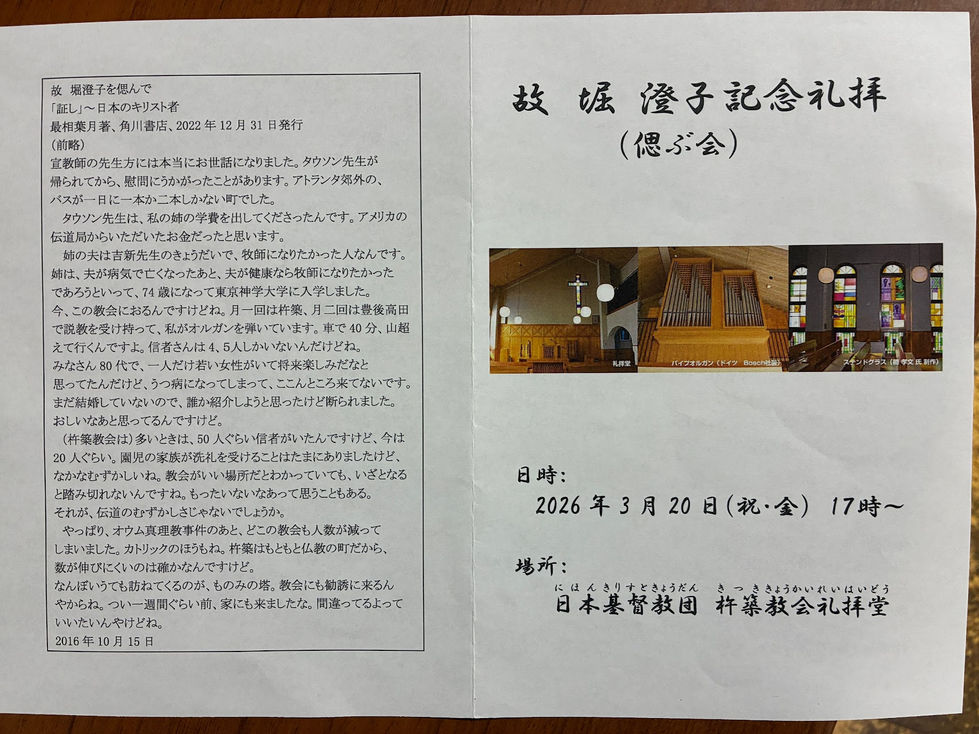 故　堀澄子を偲んで
「証し」～日本のキリスト者
最相葉月著、角川書店、2022年12月31日発行
(前略)
宣教師の先生方には本当にお世話になりました。タウソン先生が
帰られてから、慰問にうかがったことがあります。アトランタ郊外の、
バスが一日に一本か二本しかない町でした。
タウソン先生は、私の姉の学費を出してくださったんです。アメリカの
伝道局からいただいたお金だったと思います。
姉の夫は吉新先生のきょうだいで、牧師になりたかった人なんです。
姉は、夫が病気で亡くなったあと、夫が健康なら牧師になりたかった
であろうといって、74歳になって東京神学大学に入学しました。
今、この教会におるんですけどね。月一回は杵築、月二回は豊後高田
で説教を受け持って、私がオルガンを弾いています。車で40分、山超
えて行くんですよ。信者さんは4、5人しかいないんだけどね。
みなさん80代で、一人だけ若い女性がいて将来楽しみだなと
思ってたんだけど、うつ病になってしまって、ここんところ来てないです。
まだ結婚していないので、誰か紹介しようと思ったけど断られました。
おしいなあと思ってるんですけど。
(杵築教会は)多いときは、50人ぐらい信者がいたんですけど、今は
20人ぐらい。園児の家族が洗礼を受けることはたまにありましたけど、
なかなかむずかしいね。教会がいい場所だとわかっていても、いざとなる
と踏み切れないんですね。もったいないなあって思うこともある。
それが、伝道のむずかしさじゃないでしょうか。
やっぱり、オウム真理教事件のあと、どこの教会も人数が減って
しまいました。カトリックのほうもね。杵築はもともと仏教の町だから、
数が伸びにくいのは確かなんですけど。
なんぼいうても訪ねてくるのが、ものみの塔。教会にも勧誘に来るん
やからね。つい一週間ぐらい前、家にも来ましたな。間違ってるよって
いいたいんやけどね。
2016年10月15日
故　堀　澄子記念礼拝
(偲ぶ会)
礼拝堂
パイプオルガン（ドイツ　Bosch社製）
ステンドグラス（ 孝文 氏 制作）
日時：
2026年3月20日(祝・金)　17時～
場所：
にほんきりすときょうだん　きつききょうかいれいはいどう
日本基督教団　杵築教会礼拝堂